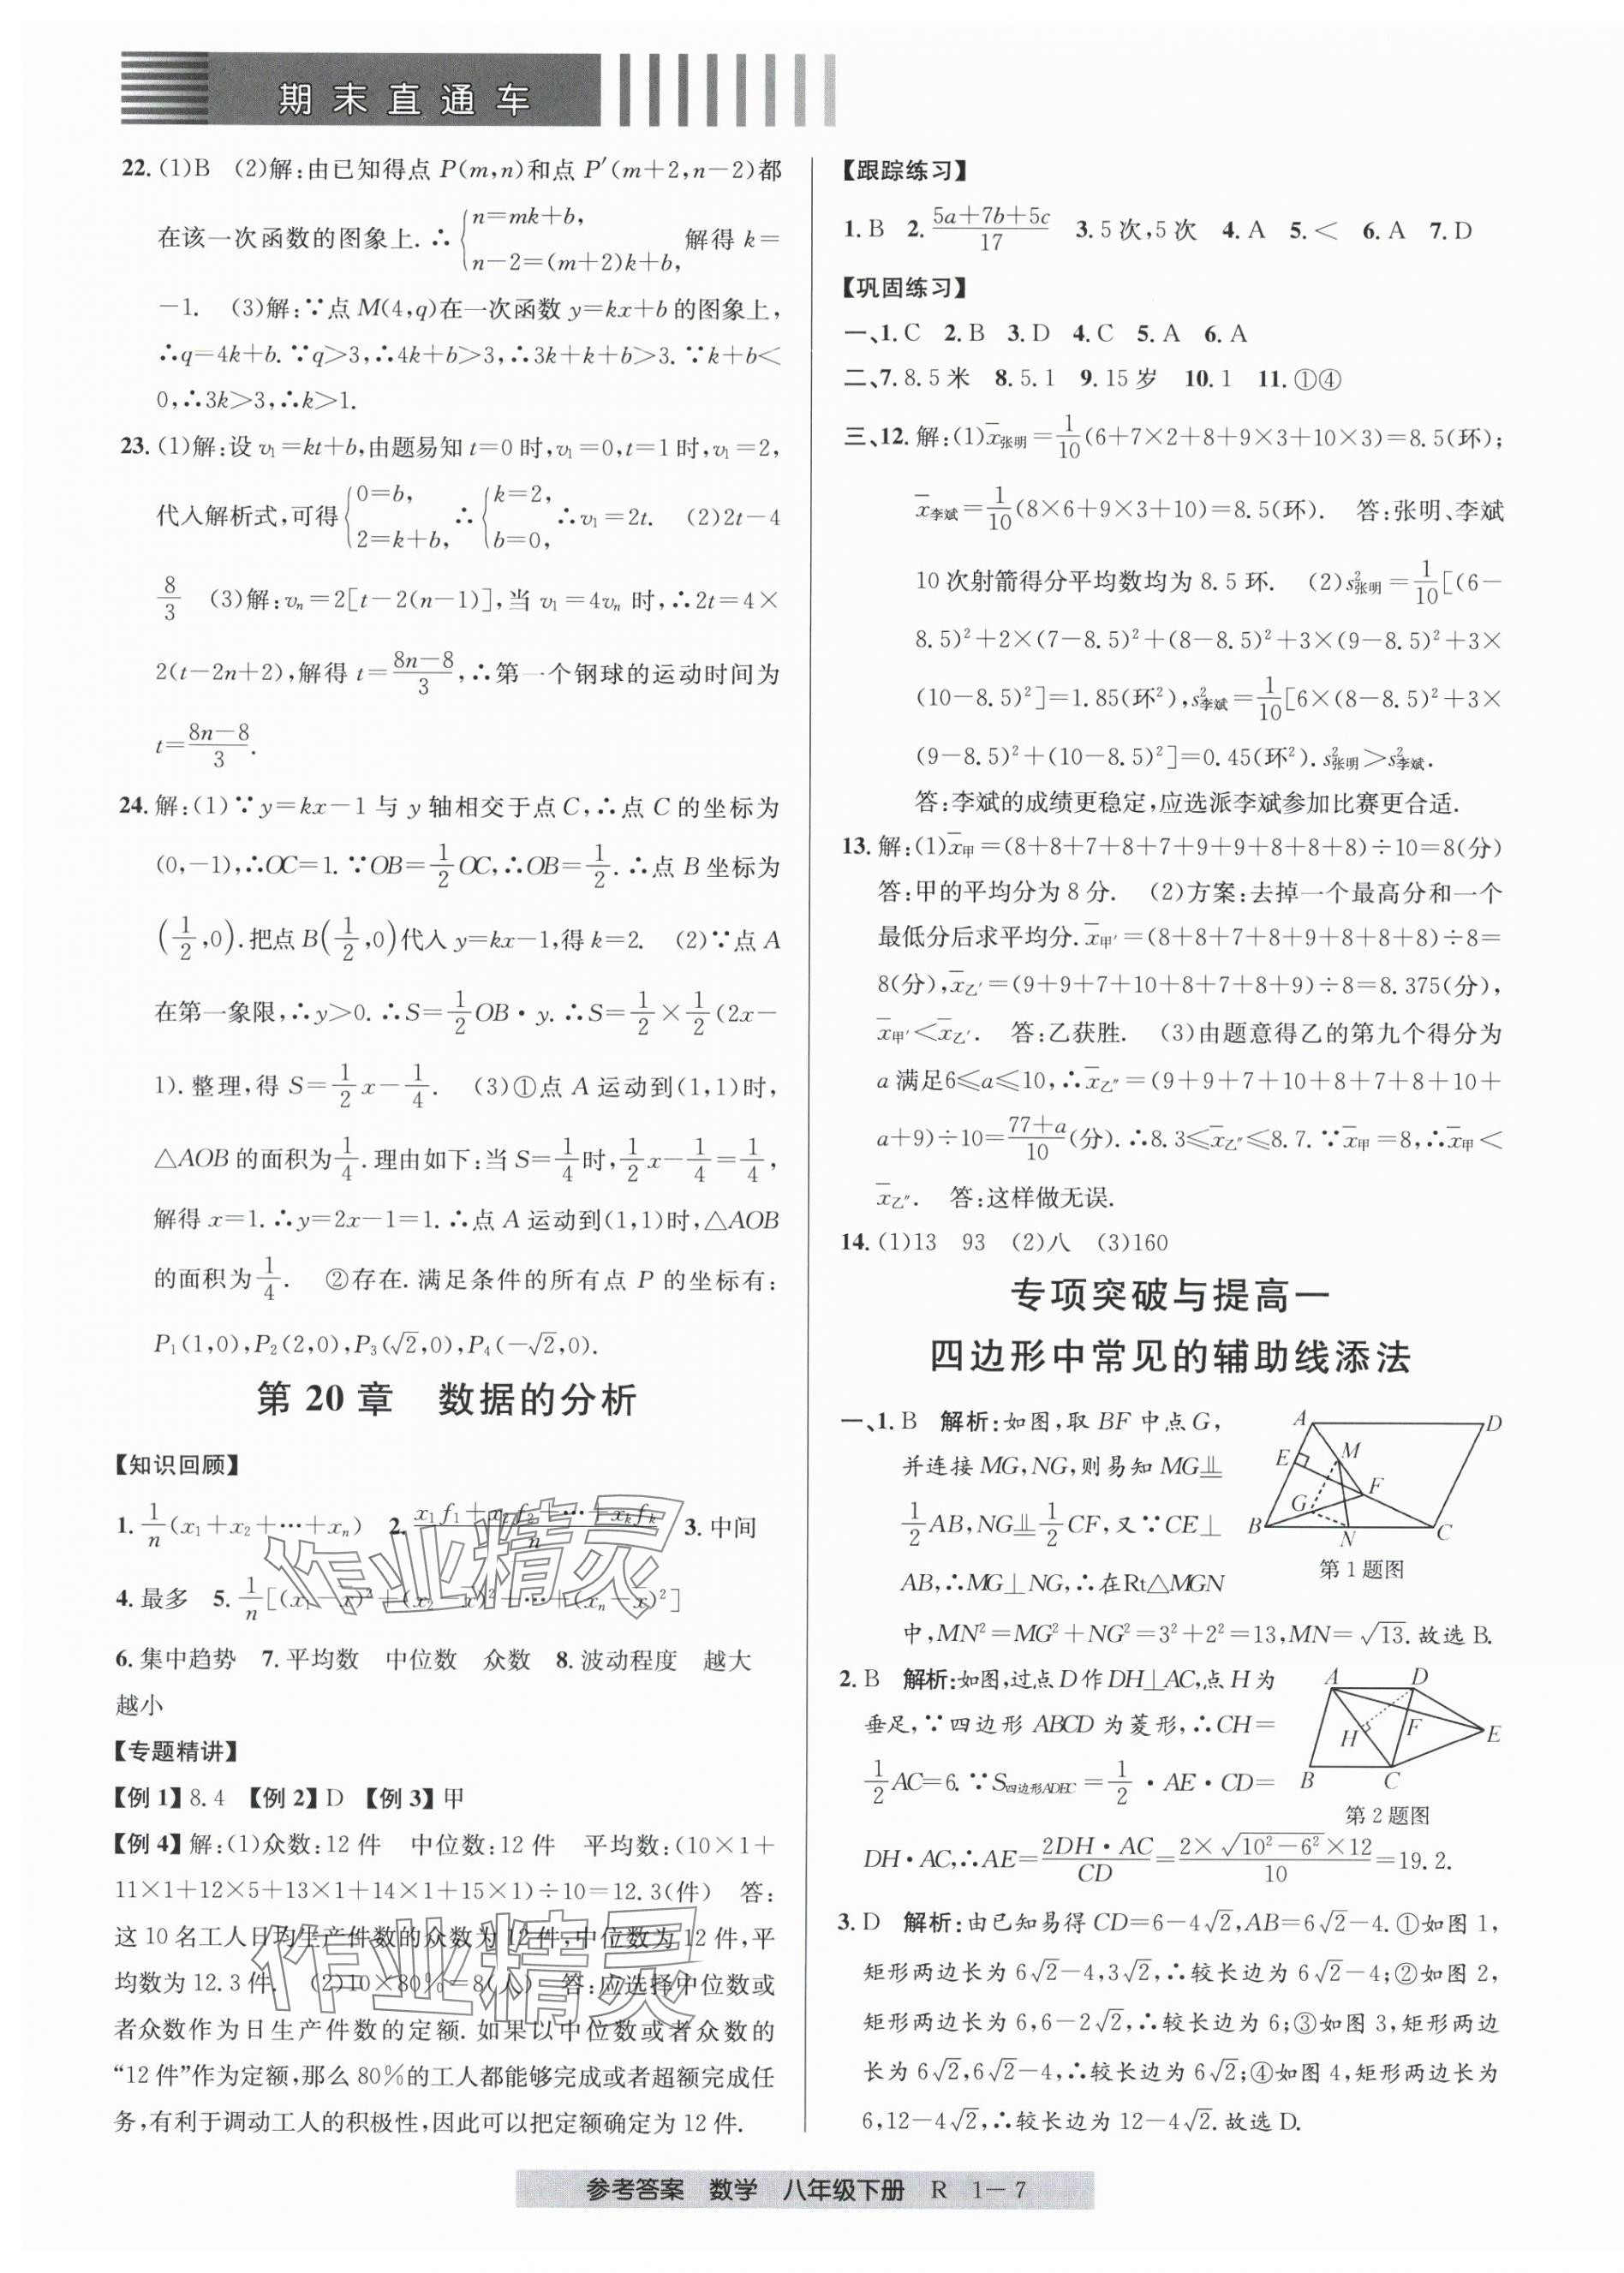 期末直通车
22. (1)B　(2)解:由已知得点 P(m,n)和点 P′(m+2,n−2)都
在该一次函数的图象上. ∴{n=mk+b, n−2=(m+2)k+b, 解得 k=
−1.　(3)解:∵点 M(4,q)在一次函数 y=kx+b 的图象上,
∴q=4k+b. ∵q>3,∴4k+b>3,∴3k+k+b>3. ∵k+b<
0,∴3k>3,∴k>1.
23. (1)解:设 v₁=kt+b,由题易知 t=0 时,v₁=0,t=1 时,v₁=2,
代入解析式,可得{0=b, 2=k+b, ∴{k=2, b=0, ∴v₁=2t.　(2)2t−4
8/3　(3)解:vₙ=2[t−2(n−1)],当 v₁=4vₙ 时,∴2t=4×
2(t−2n+2),解得 t=(8n−8)/3,∴第一个钢球的运动时间为
t=(8n−8)/3.
24. 解:(1)∵y=kx−1 与 y 轴相交于点 C,∴点 C 的坐标为
(0,−1),∴OC=1. ∵OB=1/2 OC,∴OB=1/2. ∴点 B 坐标为
(1/2,0).把点 B(1/2,0)代入 y=kx−1,得 k=2.　(2)∵点 A
在第一象限,∴y>0. ∴S=1/2 OB·y. ∴S=1/2×1/2(2x−
1). 整理,得 S=1/2 x−1/4.　(3)①点 A 运动到(1,1)时,
△AOB 的面积为1/4.理由如下:当 S=1/4时,1/2 x−1/4=1/4,
解得 x=1. ∴y=2x−1=1. ∴点 A 运动到(1,1)时,△AOB
的面积为1/4.　②存在. 满足条件的所有点 P 的坐标有:
P₁(1,0),P₂(2,0),P₃(√2,0),P₄(−√2,0).
第 20 章　数据的分析
【知识回顾】
1. 1/n(x₁+x₂+…+xₙ)　2. (x₁f₁+x₂f₂+…+xₖfₖ)/n　3. 中间
4. 最多　5. 1/n[(x₁−x̄)²+(x₂−x̄)²+…+(xₙ−x̄)²]
6. 集中趋势　7. 平均数　中位数　众数　8. 波动程度　越大
越小
【专题精讲】
【例 1】8.4　【例 2】D　【例 3】甲
【例 4】解:(1)众数:12 件　中位数:12 件　平均数:(10×1+
11×1+12×5+13×1+14×1+15×1)÷10=12.3(件)　答:
这 10 名工人日均生产件数的众数为 12 件,中位数为 12 件,平
均数为 12.3 件.　(2)10×80%=8(人)　答:应选择中位数或
者众数作为日生产件数的定额. 如果以中位数或者众数的
“12 件”作为定额,那么 80%的工人都能够完成或者超额完成任
务,有利于调动工人的积极性,因此可以把定额确定为 12 件.
【跟踪练习】
1. B　2. (5a+7b+5c)/17　3. 5 次,5 次　4. A　5. <　6. A　7. D
【巩固练习】
一、1. C　2. B　3. D　4. C　5. A　6. A
二、7. 8.5 米　8. 5.1　9. 15 岁　10. 1　11. ①④
三、12. 解:(1)x̄张明=1/10(6+7×2+8+9×3+10×3)=8.5(环);
x̄李斌=1/10(8×6+9×3+10)=8.5(环).　答:张明、李斌
10 次射箭得分平均数均为 8.5 环.　(2)s²张明=1/10[(6−
8.5)²+2×(7−8.5)²+(8−8.5)²+3×(9−8.5)²+3×
(10−8.5)²]=1.85(环²),s²李斌=1/10[6×(8−8.5)²+3×
(9−8.5)²+(10−8.5)²]=0.45(环²).s²张明>s²李斌.
答:李斌的成绩更稳定,应选派李斌参加比赛更合适.
13. 解:(1)x̄甲=(8+8+7+8+7+9+9+8+8+8)÷10=8(分)
答:甲的平均分为 8 分.　(2)方案:去掉一个最高分和一个
最低分后求平均分. x̄甲′=(8+8+7+8+9+8+8+8)÷8=
8(分),x̄乙′=(9+9+7+10+8+7+8+9)÷8=8.375(分),
x̄甲′<x̄乙′.　答:乙获胜.　(3)由题意得乙的第九个得分为
a 满足6≤a≤10,∴x̄乙″=(9+9+7+10+8+7+8+10+
a+9)÷10=(77+a)/10(分). ∴8.3≤x̄乙″≤8.7. ∵x̄甲=8,∴x̄甲<
x̄乙″.　答:这样做无误.
14. (1)13　93　(2)八　(3)160
专项突破与提高一
四边形中常见的辅助线添法
一、1. B　解析:如图,取 BF 中点 G,
并连接 MG,NG,则易知 MG⫫
1/2 AB,NG⫫1/2 CF,又∵CE⊥
AB,∴MG⊥NG,∴在Rt△MGN
中,MN²=MG²+NG²=3²+2²=13,MN=√13.故选 B.
A D E M F G B N C
第 1 题图
2. B　解析:如图,过点 D 作 DH⊥AC,点 H 为
垂足,∵四边形 ABCD 为菱形,∴CH=
1/2 AC=6. ∵S四边形ADEC=1/2·AE·CD=
DH·AC,∴AE=(2DH·AC)/CD=(2×√(10²−6²)×12)/10=19.2.
A D H F E B C
第 2 题图
3. D　解析:由已知易得 CD=6−4√2,AB=6√2−4. ①如图 1,
矩形两边长为 6√2−4,3√2,∴较长边为 6√2−4;②如图 2,
矩形两边长为 6,6−2√2,∴较长边为 6;③如图 3,矩形两边
长为 6√2,6√2−4,∴较长边为 6√2;④如图 4,矩形两边长为
6,12−4√2,∴较长边为 12−4√2.故选 D.
作业精灵
作业精灵
参考答案　数学　八年级下册　R　1−7